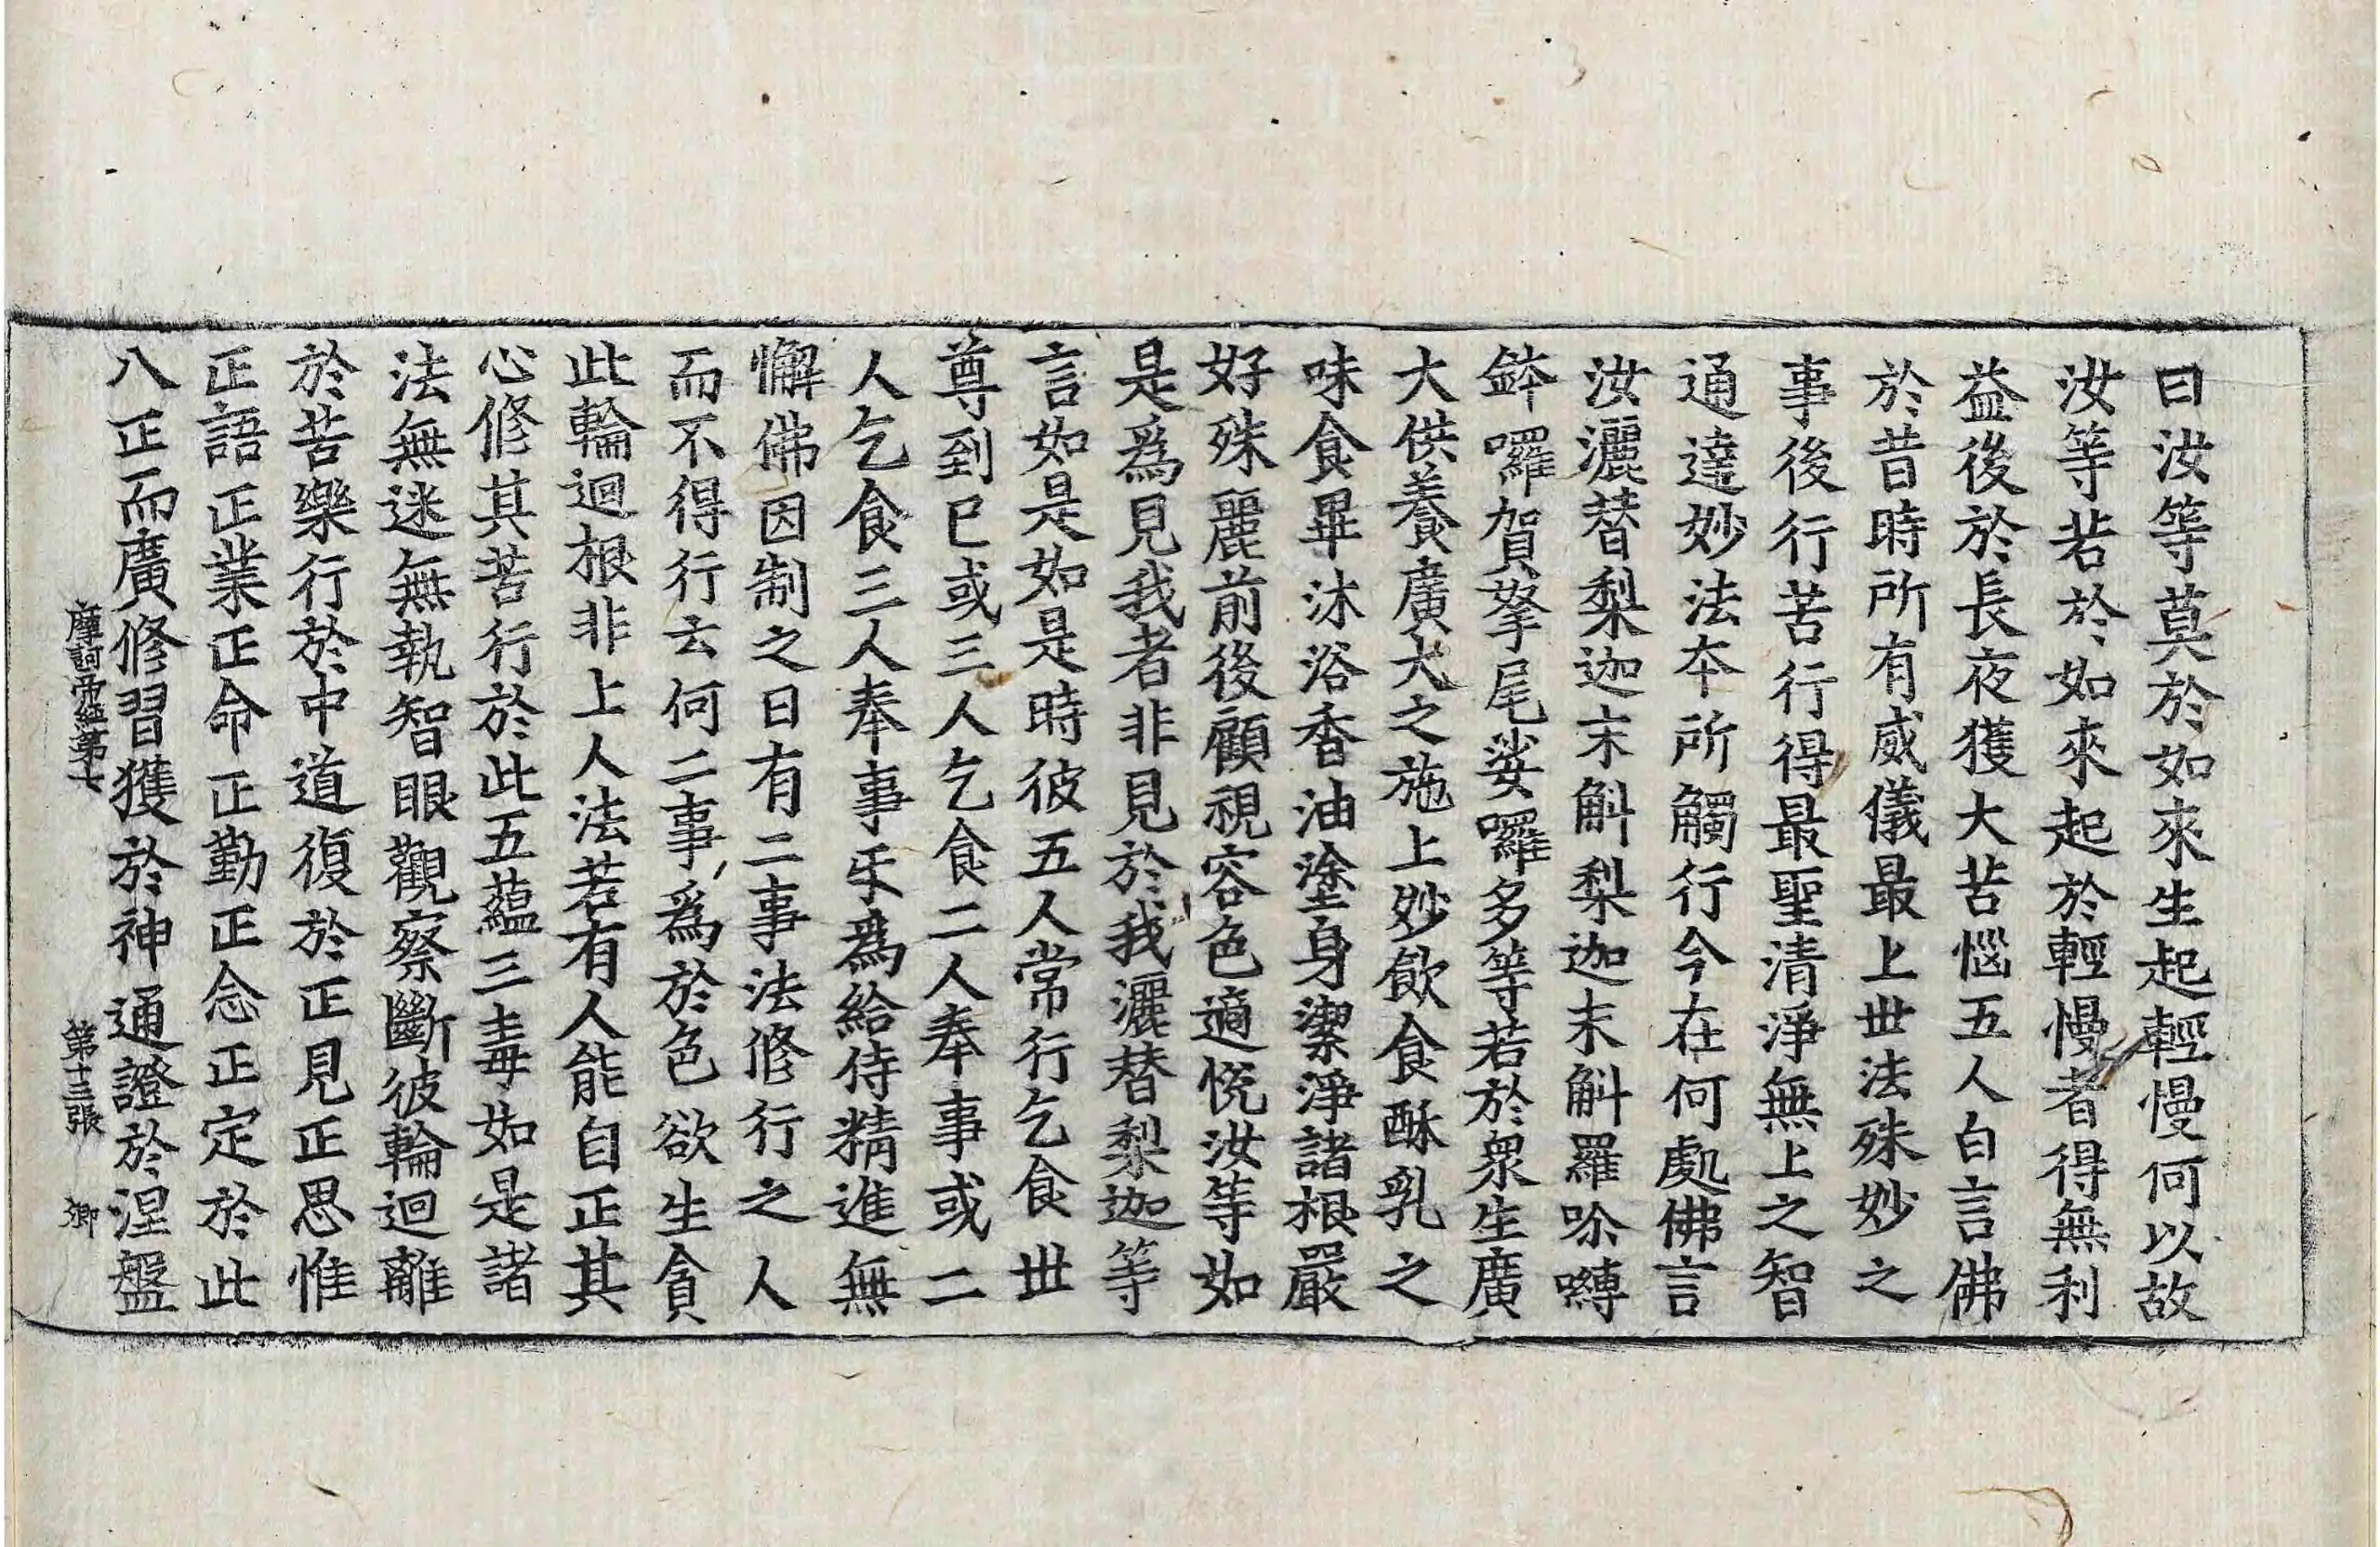 曰汝等莫於如來生起輕慢何以故
汝等若於如來起於輕慢者得無利
益後於長夜獲大苦惱五人白言佛
於昔時所有威儀最上世法殊妙之
事後行苦行得最聖清淨無上之智
通達妙法本所觸行今在何處佛言
汝灑替梨迦末斛梨迦末斛羅唋囀
鉢囉賀拏尾娑囉多等若於衆生廣
大供養廣大之施上妙飲食酥乳之
味食畢沐浴香油塗身潔淨諸根嚴
好殊麗前後顧視容色適悅汝等如
是爲見我者非見於我灑替梨迦等
言如是如是時彼五人常行乞食世
尊到已或三人乞食二人奉事或二
人乞食三人奉事㸦爲給侍精進無
懈佛因制之曰有二事法修行之人
而不得行云何二事爲於色欲生貪
此輪迴根非上人法若有人能自正其
心修其苦行於此五蘊三毒如是諸
法無迷無執智眼觀察斷彼輪迴離
於苦樂行於中道復於正見正思惟
正語正業正命正勤正念正定於此
八正而廣修習獲於神通證於涅盤
摩訶帝經第七 第十三張 卿